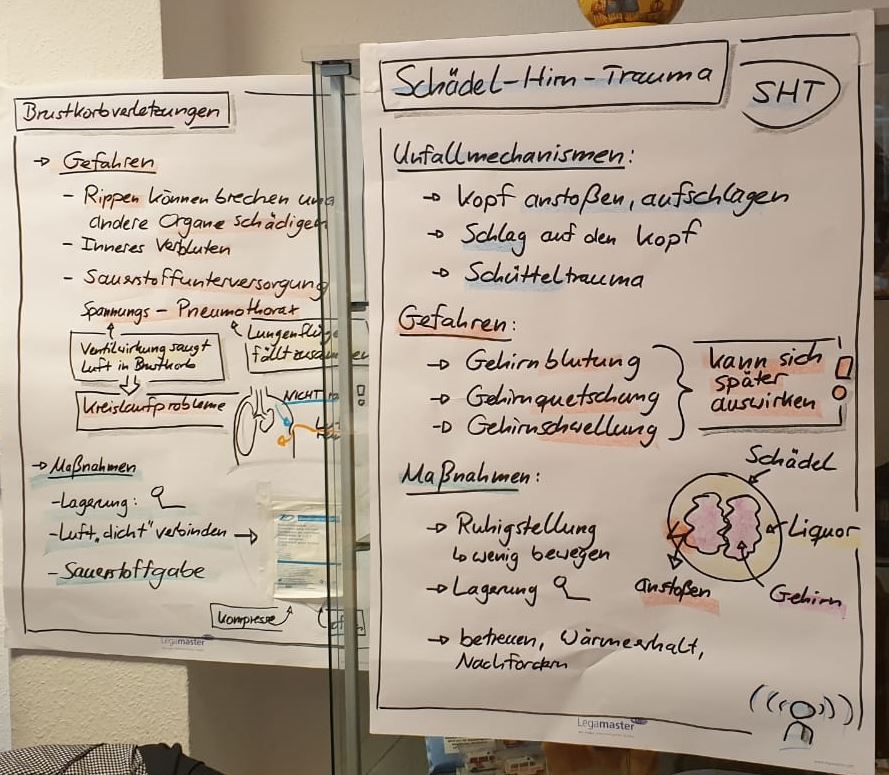 Brustkorbverletzungen
→ Gefahren
- Rippen können brechen und
andere Organe schädigen
- Inneres Verbluten
- Sauerstoffunterversorgung
Spannungs - Pneumothorax
Ventilwirkung saugt
Luft in Brustkorb
Lungenflüge
fällt zusammen
Kreislaufprobleme
NICHT
→ Maßnahmen
- Lagerung:
- Luft „dicht" verbinden →
- Sauerstoffgabe
Kompresse
Legamaster
Schädel-Hirn-Trauma
SHT
Unfallmechanismen:
→ Kopf anstoßen, aufschlagen
→ Schlag auf den Kopf
→ Schütteltrauma
Gefahren:
→ Gehirnblutung
→ Gehirnquetschung
→ Gehirnschwellung
kann sich
später
auswirken
!
Maßnahmen:
→ Ruhigstellung
↳ wenig bewegen
→ Lagerung
→ betreuen, Wärmeerhalt,
Nachfordern
Schädel
Liquor
Gehirn
anstoßen
Legamaster